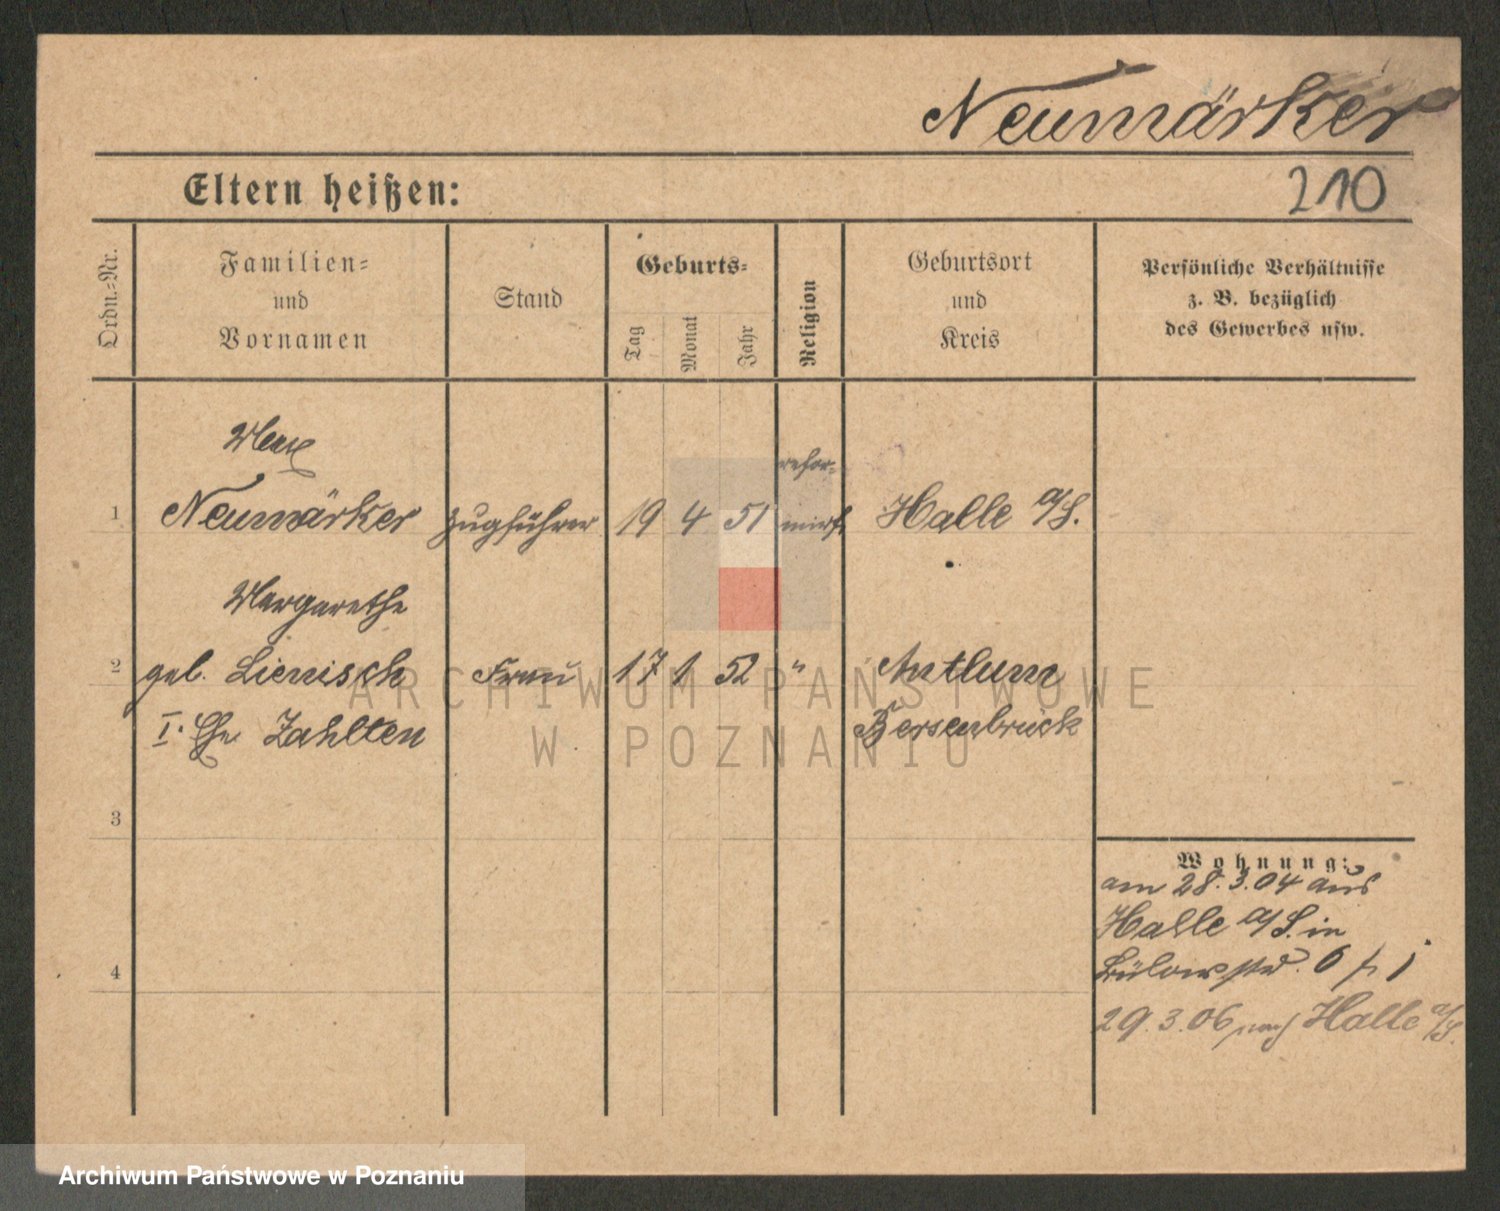 Neumärker
Eltern heißen:
210
Ordn.-Nr.
Familien-
und
Vornamen
Stand
Geburts-
Tag
Monat
Jahr
Religion
Geburtsort
und
Kreis
Persönliche Verhältnisse
z. B. bezüglich
des Gewerbes usw.
Max
1 Neumärker Zugführer 19 4 51 refor-
mirt Halle a/S.
Margarethe
2 geb. Lienisch Frau 17 1 52 " Antlum
I. Ehe Zahlten Bersenbrück
3
4
Wohnung:
am 28.3.04 aus
Halle a/S. in
Bülowstr. 6
29.3.06 nach Halle a/S.
ARCHIWUM PAŃSTWOWE
W POZNANIU
Archiwum Państwowe w Poznaniu